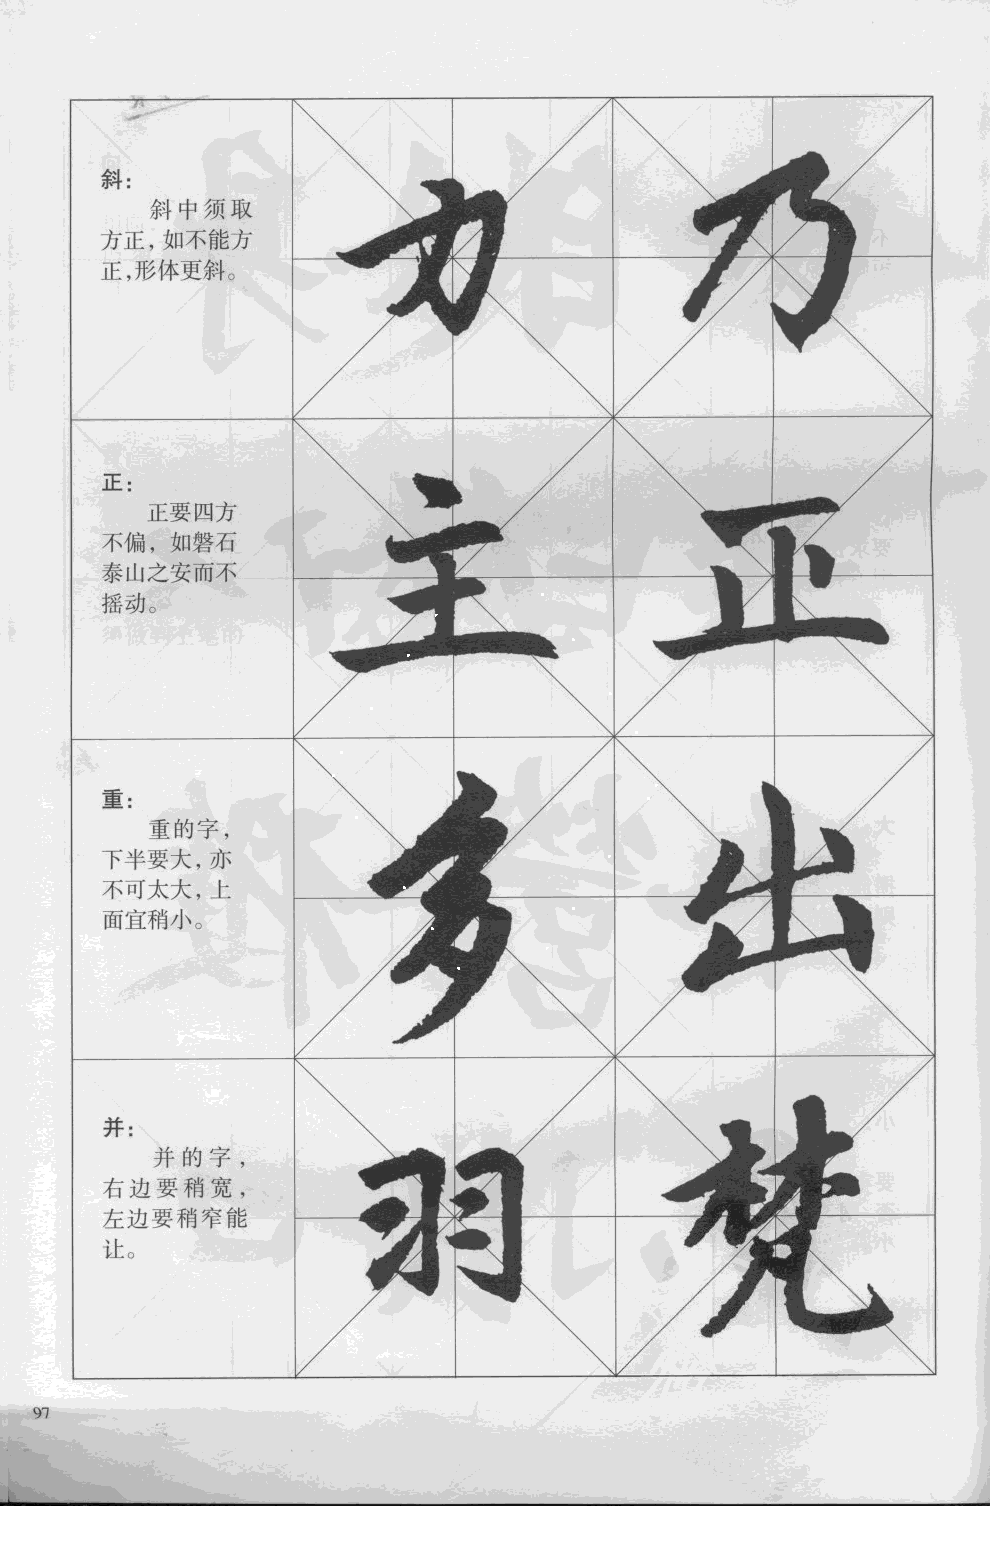 斜：
斜中须取
方正，如不能方
正，形体更斜。
力 乃
正：
正要四方
不偏，如磐石
泰山之安而不
摇动。
主 正
重：
重的字，
下半要大，亦
不可太大，上
面宜稍小。
多 出
并：
并的字，
右边要稍宽，
左边要稍窄能
让。
羽 梵
97